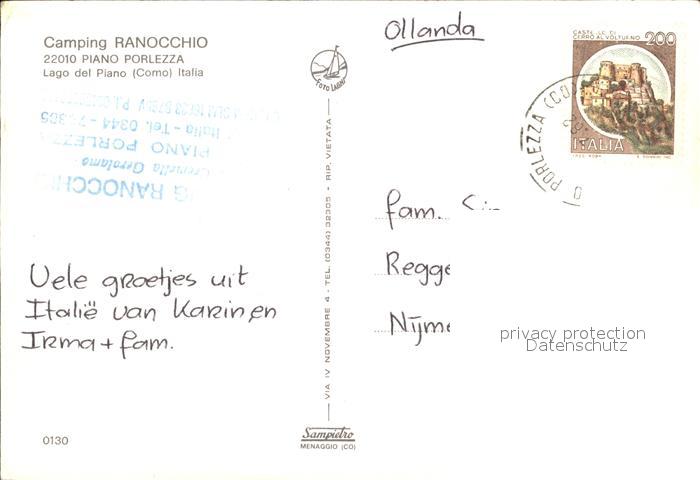 Camping RANOCCHIO
22010 PIANO PORLEZZA
Lago del Piano (Como) Italia
Italia - Tel. 0344 -
PIANO PORLEZZA
Cremella Gerolamo
RANOCCHIO
Vele groetjes uit
Italië van Karin en
Irma + fam.
0130
FOTO LAGHI
VIA IV NOVEMBRE 4 - TEL. (0344) 32305 - RIP. VIETATA
Sampietro
MENAGGIO (CO)
Ollanda
CASTELLO DI
CERRO AL VOLTURNO 200
ITALIA
PORLEZZA (CO
fam.
Regge
Nijme
privacy protection
Datenschutz